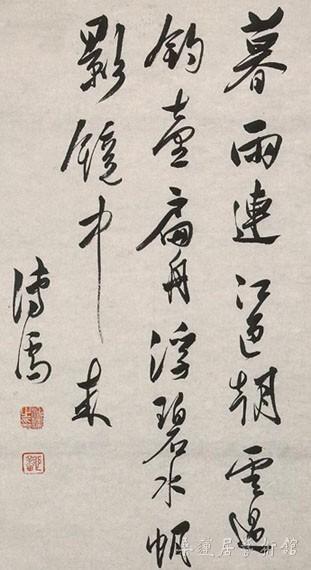 暮雨連江色朝雲過
釣臺扁舟浮碧水帆
影鏡中來
溥儒
居藝術館